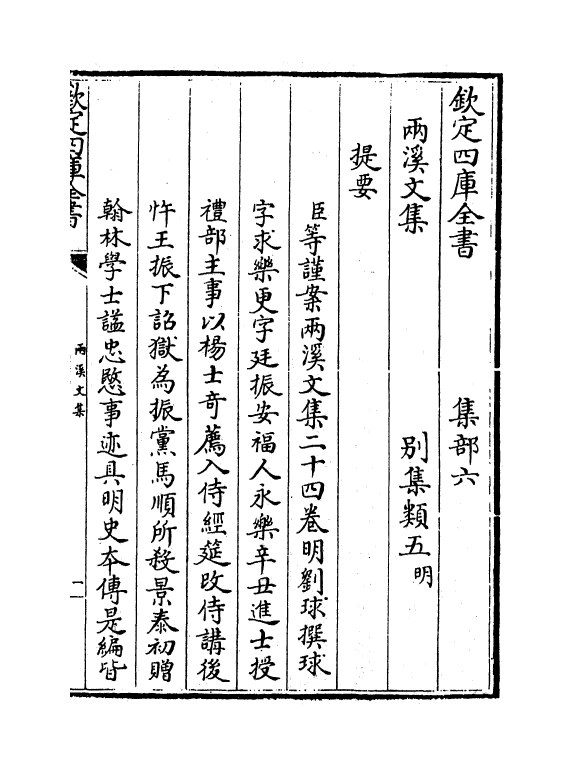 欽定四庫全書　集部六
兩溪文集　别集類五明
提要
臣等謹案兩溪文集二十四卷明劉球撰球
字求樂更字廷振安福人永樂辛丑進士授
禮部主事以楊士奇薦入侍經筵改侍講後
忤王振下詔獄為振黨馬順所殺景泰初贈
翰林學士謚忠愍事迹具明史本傳是編皆
欽定四庫全書
兩溪文集
一